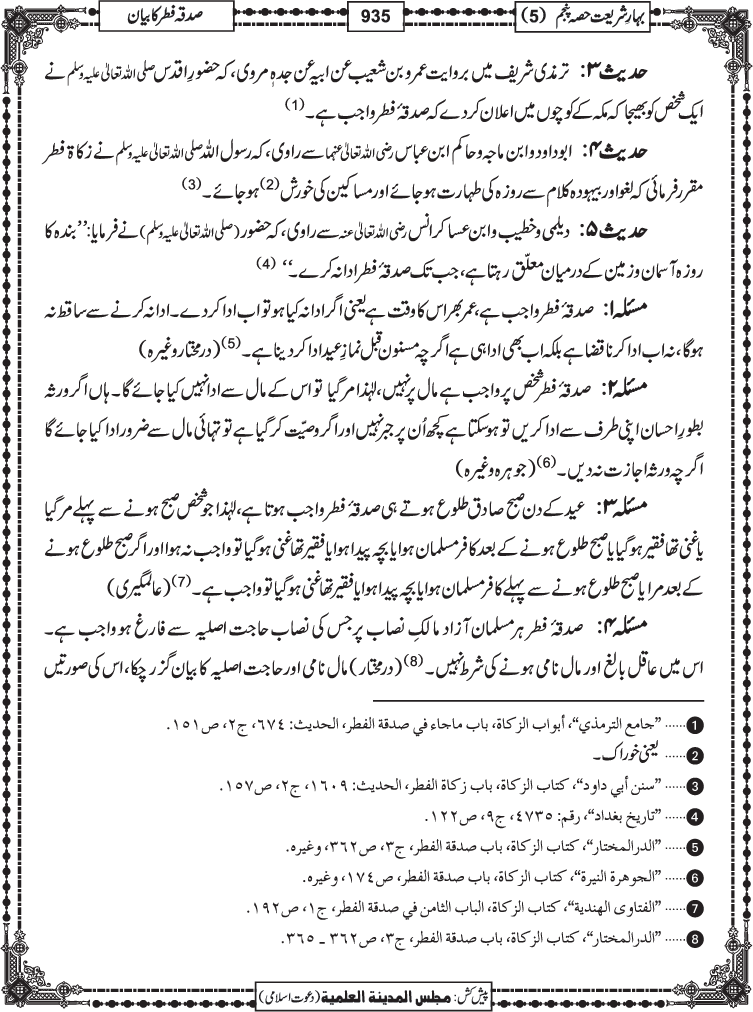 بہارِشریعت حصہ پنجم (5)
935
صدقہ فطر کا بیان
حدیث ۳: ترمذی شریف میں بروایت عمرو بن شعیب عن ابیہ عن جدہٖ مروی، کہ حضورِ اقدس صلی اللہ تعالیٰ علیہ وسلم نے
ایک شخص کو بھیجا کہ مکہ کے کوچوں میں اعلان کر دے کہ صدقۂ فطر واجب ہے۔ (1)
حدیث ۴: ابو داود و ابن ماجہ و حاکم ابن عباس رضی اللہ تعالیٰ عنہما سے راوی، کہ رسول اللہ صلی اللہ تعالیٰ علیہ وسلم نے زکاۃ فطر
مقرر فرمائی کہ لغو اور بیہودہ کلام سے روزہ کی طہارت ہو جائے اور مساکین کی خورش (2) ہو جائے۔ (3)
حدیث ۵: دیلمی و خطیب و ابن عساکر انس رضی اللہ تعالیٰ عنہ سے راوی، کہ حضور (صلی اللہ تعالیٰ علیہ وسلم) نے فرمایا: ’’بندہ کا
روزہ آسمان و زمین کے درمیان معلّق رہتا ہے، جب تک صدقۂ فطر ادا نہ کرے۔‘‘ (4)
مسئلہ ۱: صدقۂ فطر واجب ہے، عمر بھر اس کا وقت ہے یعنی اگر ادا نہ کیا ہو تو اب ادا کر دے۔ ادا نہ کرنے سے ساقط نہ
ہوگا، نہ اب ادا کرنا قضا ہے بلکہ اب بھی ادا ہی ہے اگرچہ مسنون قبل نمازِ عید ادا کر دینا ہے۔ (5) (درمختار وغیرہ)
مسئلہ ۲: صدقۂ فطر شخص پر واجب ہے مال پر نہیں، لہٰذا مر گیا تو اس کے مال سے ادا نہیں کیا جائے گا۔ ہاں اگر ورثہ
بطورِ احسان اپنی طرف سے ادا کریں تو ہو سکتا ہے کچھ اُن پر جبر نہیں اور اگر وصیّت کر گیا ہے تو تہائی مال سے ضرور ادا کیا جائے گا
اگرچہ ورثہ اجازت نہ دیں۔ (6) (جوہرہ وغیرہ)
مسئلہ ۳: عید کے دن صبح صادق طلوع ہوتے ہی صدقۂ فطر واجب ہوتا ہے، لہٰذا جو شخص صبح ہونے سے پہلے مر گیا
یا غنی تھا فقیر ہو گیا یا صبح طلوع ہونے کے بعد کافر مسلمان ہوا یا بچہ پیدا ہوا یا فقیر تھا غنی ہو گیا تو واجب نہ ہوا اور اگر صبح طلوع ہونے
کے بعد مرا یا صبح طلوع ہونے سے پہلے کافر مسلمان ہوا یا بچہ پیدا ہوا یا فقیر تھا غنی ہو گیا تو واجب ہے۔ (7) (عالمگیری)
مسئلہ ۴: صدقۂ فطر ہر مسلمان آزاد مالکِ نصاب پر جس کی نصاب حاجت اصلیہ سے فارغ ہو واجب ہے۔
اس میں عاقل بالغ اور مال نامی ہونے کی شرط نہیں۔ (8) (درمختار) مال نامی اور حاجت اصلیہ کا بیان گزر چکا، اس کی صورتیں
1 ...... ”جامع الترمذي“، أبواب الزكاة، باب ماجاء في صدقة الفطر، الحديث: ٦٧٤، ج٢، ص١٥١.
2 ...... یعنی خوراک۔
3 ...... ”سنن أبي داود“، كتاب الزكاة، باب زكاة الفطر، الحديث: ١٦٠٩، ج٢، ص١٥٧.
4 ...... ”تاريخ بغداد“، رقم: ٤٧٣٥، ج٩، ص١٢٢.
5 ...... ”الدرالمختار“، كتاب الزكاة، باب صدقة الفطر، ج٣، ص٣٦٢، وغيره.
6 ...... ”الجوهرة النيرة“، كتاب الزكاة، باب صدقة الفطر، ص١٧٤، وغيره.
7 ...... ”الفتاوى الهندية“، كتاب الزكاة، الباب الثامن في صدقة الفطر، ج١، ص١٩٢.
8 ...... ”الدرالمختار“، كتاب الزكاة، باب صدقة الفطر، ج٣، ص٣٦٢ ـ ٣٦٥.
پیش کش: مجلس المدينة العلمية (دعوت اسلامی)